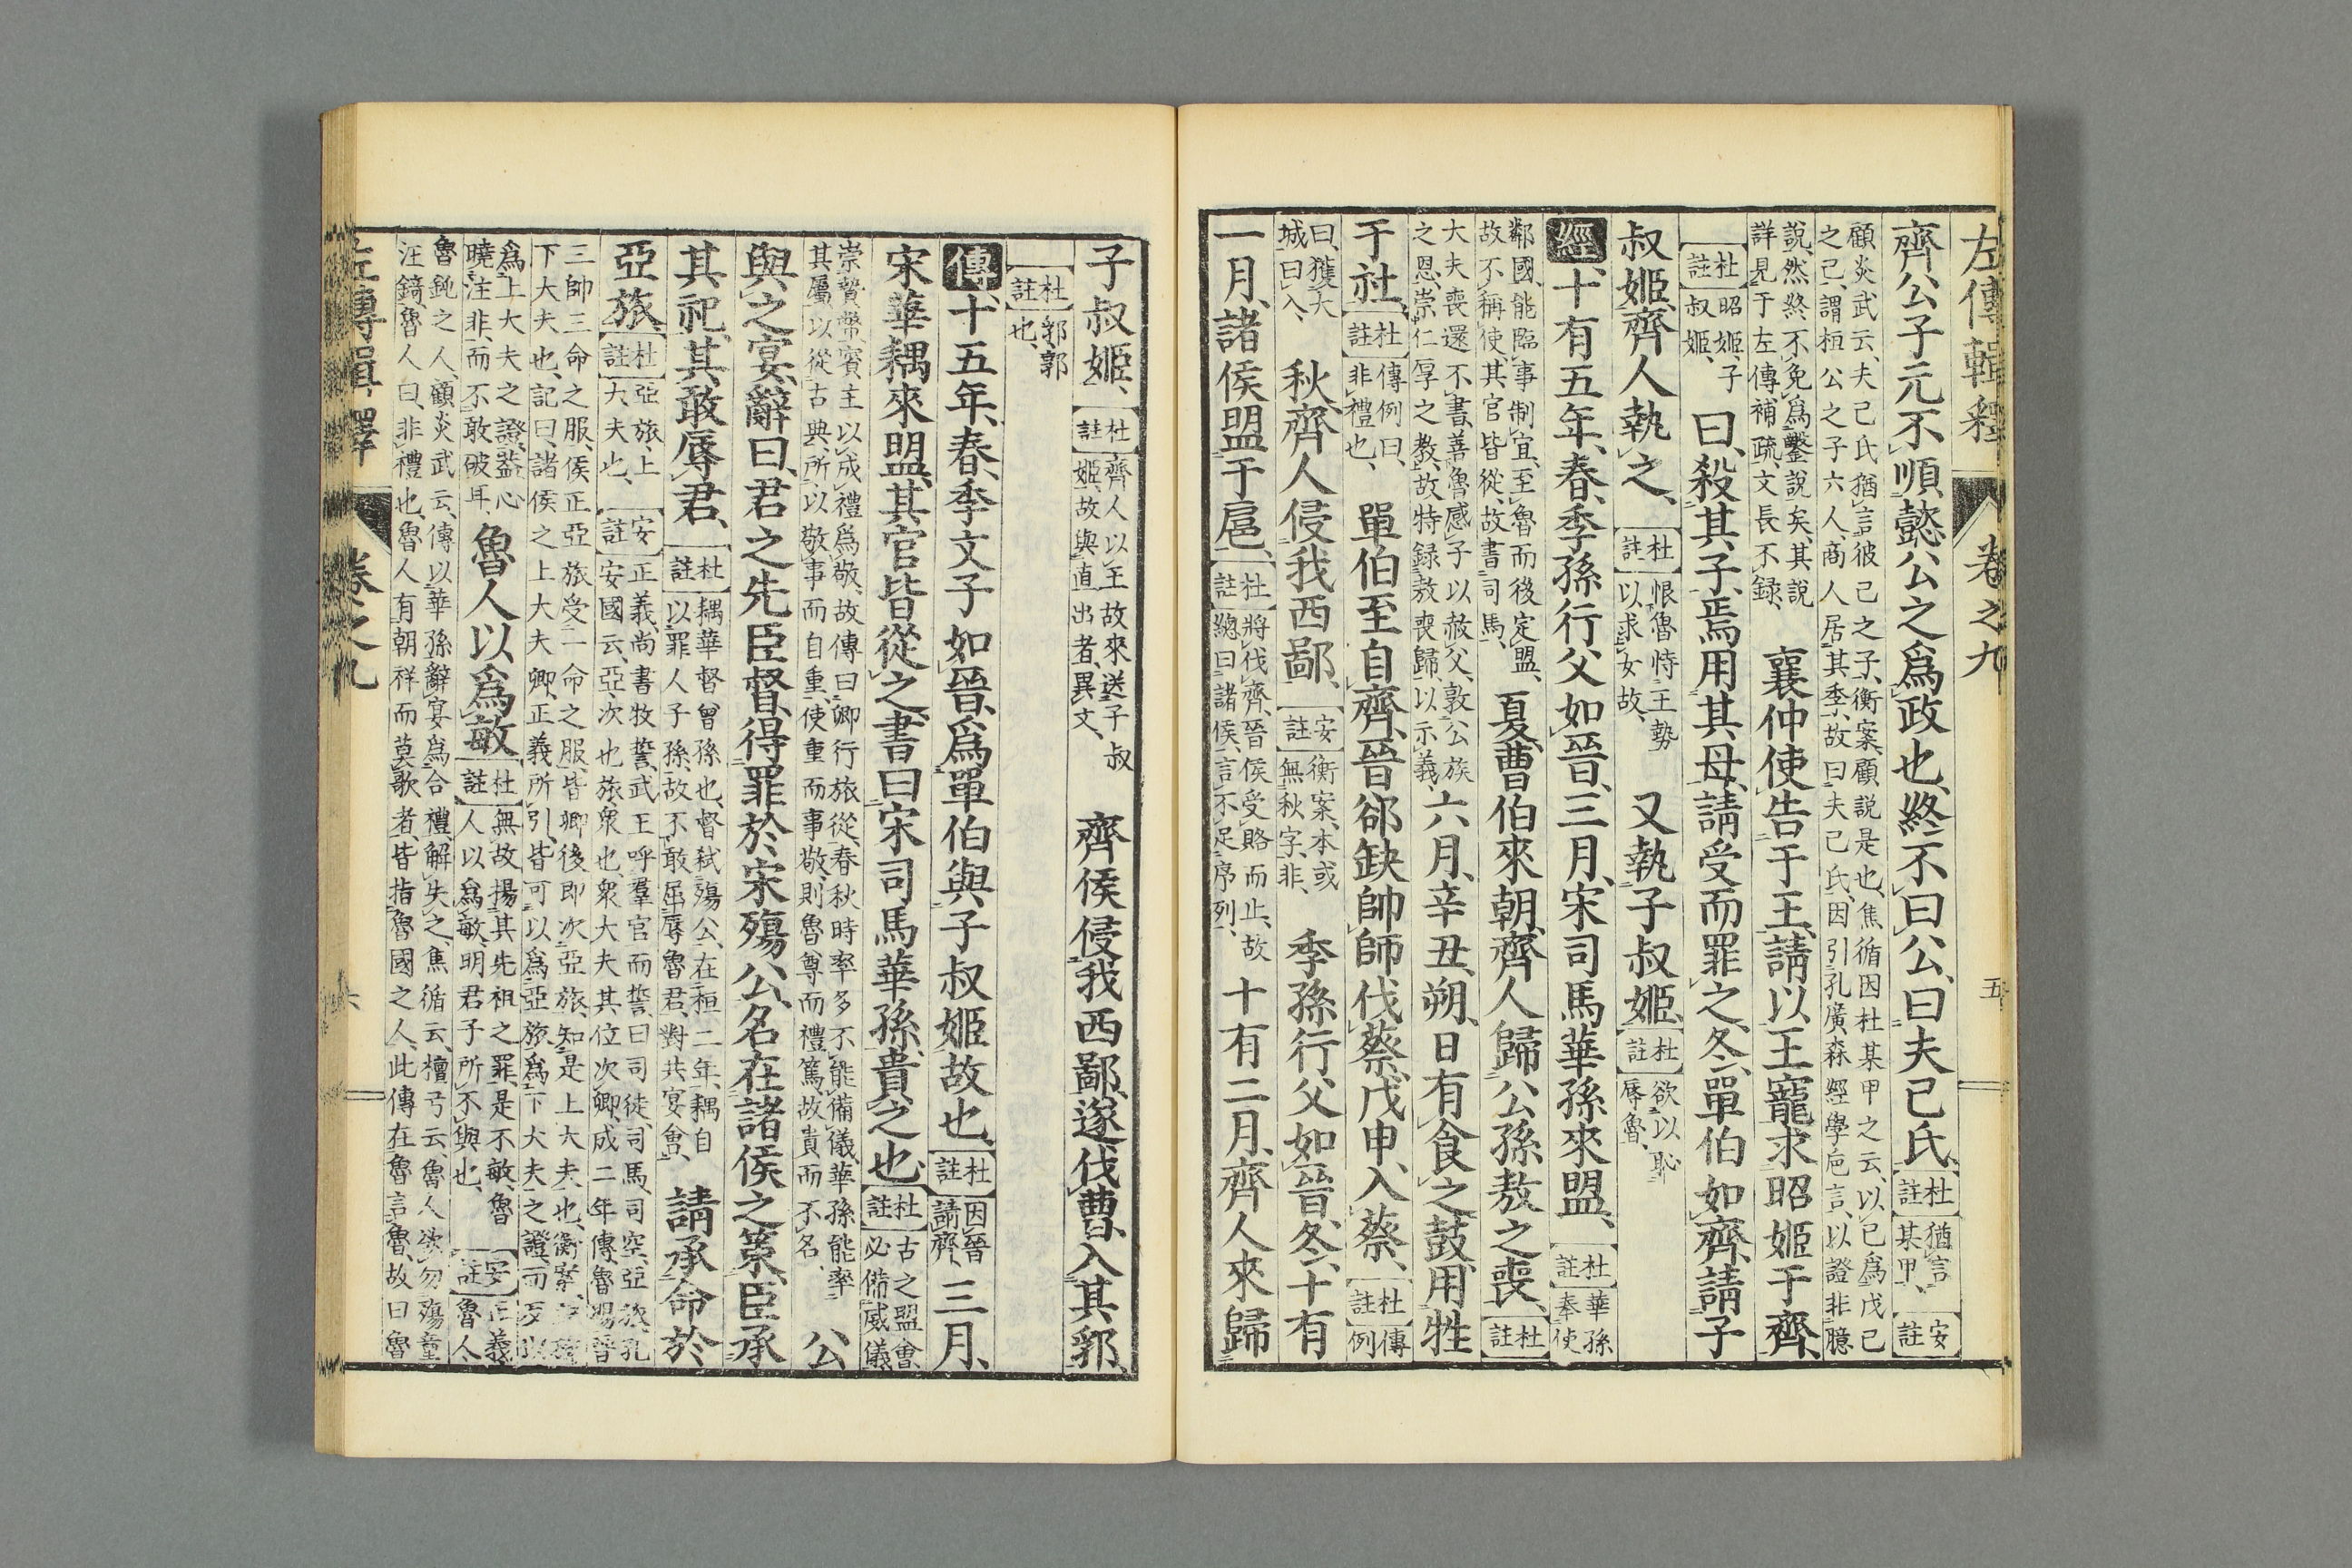 左傳輯釋 卷之九 五
齊公子元不順懿公之爲政也、終不曰公、曰夫己氏、杜註猶言某甲、安註
顧炎武云、夫己氏猶言彼己之子、衡案、顧說是也、焦循因杜某甲之云、以己爲戊己
之己、謂桓公之子六人、商人居其季、故曰夫己氏、因引孔廣森經學卮言、以證非臆
說、然終不免爲鑿說矣、其說
詳見于左傳補疏、文長不錄、
襄仲使告于王、請以王寵求昭姬于齊、
杜註昭姬、子叔姬、
曰、殺其子、焉用其母、請受而罪之、冬、單伯如齊、請子
叔姬、齊人執之、杜註恨魯恃王勢以求女故、又執子叔姬、杜註欲以恥辱魯、
經十有五年、春、季孫行父如晉、三月、宋司馬華孫來盟、杜註華孫奉使
鄰國、能臨事制宜、至魯而後定盟、
故不稱使、其官皆從、故書司馬、
夏、曹伯來朝、齊人歸公孫敖之喪、杜註
大夫喪還不書、善魯感子以赦父、敦公族
之恩、崇仁孚之教、故特録敖喪歸以示義、
六月、辛丑、朔、日有食之、鼓用牲
于社、杜註傳例曰、非禮也、單伯至自齊、晉郤缺帥師伐蔡、戊申、入蔡、杜註傳例
曰、獲大城曰入、秋、齊人侵我西鄙、安註衡案、本或無秋字、非、季孫行父如晉、冬、十有
一月、諸侯盟于扈、杜註將伐齊、晉侯受賂而止、故總曰諸侯、言不足序列、十有二月、齊人來歸
子叔姬、杜註齊人以王故來送子叔姬、故與直出者異文、齊侯侵我西鄙、遂伐曹、入其郛、
杜註郛郭也、
傳十五年、春、季文子如晉、爲單伯與子叔姬故也、杜註因晉請齊、三月、
宋華耦來盟、其官皆從之、書曰宋司馬華孫、貴之也、杜註古之盟會、必備威儀、
崇贄幣、賓主以成禮爲敬、故傳曰、卿行旅從、春秋時率多不能備儀、華孫能率
其屬以從古典、所以敬事而自重、使重而事敬、則魯尊而禮篤、故貴而不名、
公
與之宴、辭曰、君之先臣督、得罪於宋殤公、名在諸侯之策、臣承
其祀、其敢辱君、杜註耦華督曾孫也、督弒殤公、在桓二年、耦自以罪人子孫、故不敢屈辱魯君、對共宴會、請承命於
亞旅、杜註亞旅、上大夫也、安註正義、尚書牧誓、武王呼羣官而誓曰、司徒司馬司空、亞旅、孔
安國云、亞、次也、旅、衆也、衆大夫其位次卿、成二年傳、魯賜晉
三帥三命之服、侯正亞旅受一命之服、皆卿後即次亞旅、知是上大夫也、衡案、
下大夫也、記曰、諸侯之上大夫卿、正義所引、皆可以爲亞旅爲下大夫之證、而反以
爲上大夫之證、蓋心
曉注非、而不敢破耳、
魯人以爲敏、杜註無故揚其先祖之罪、是不敏、魯人以爲敏、明君子所不與也、安註正義魯人、
魯鈍之人、顧炎武云、傳以華孫辭宴爲合禮、解失之、焦循云、檀弓云、魯人欲勿殤童
汪錡、魯人曰、非禮也、魯人有朝祥而莫歌者、皆指魯國之人、此傳在魯言魯、故曰魯
左傳輯釋 卷之九 六